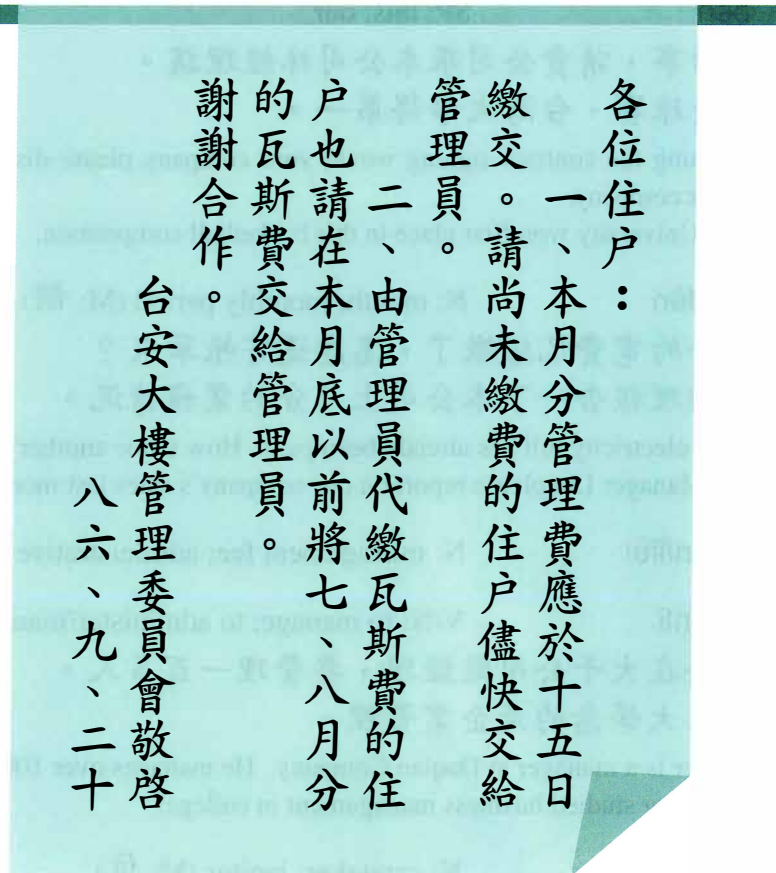 各位住户：
一、本月分管理費應於十五日
繳交。請尚未繳費的住户儘快交給
管理員。
二、由管理員代繳瓦斯費的住
户也請在本月底以前將七、八月分
的瓦斯費交給管理員。
謝謝合作。
台安大樓管理委員會敬啓
八六、九、二十